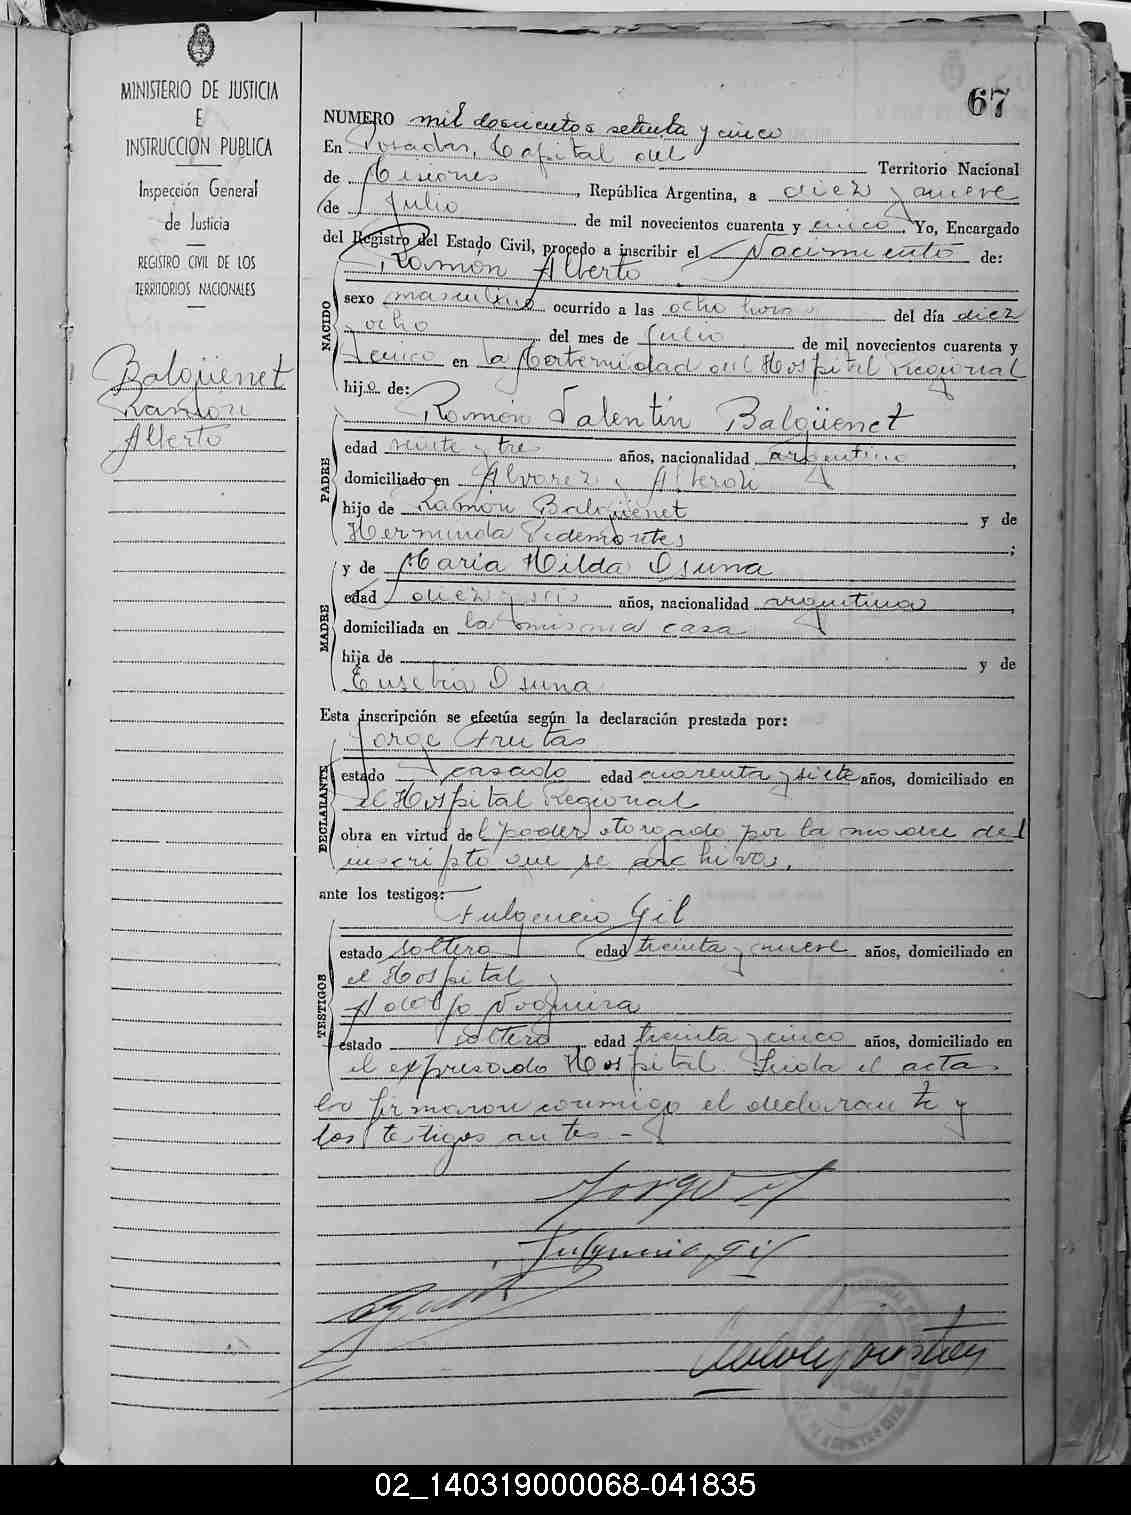 MINISTERIO DE JUSTICIA
E
INSTRUCCION PUBLICA
Inspección General
de Justicia
REGISTRO CIVIL DE LOS
TERRITORIOS NACIONALES
Balgüenet
Ramón
Alberto
67
NUMERO mil doscientos setenta y cinco
En Posadas, Capital del Territorio Nacional
de Misiones, República Argentina, a diez y nueve
de Julio de mil novecientos cuarenta y cinco Yo, Encargado
del Registro del Estado Civil, procedo a inscribir el Nacimiento de:
Ramón Alberto
NACIDO
sexo masculino ocurrido a las ocho horas del día diez
y ocho del mes de Julio de mil novecientos cuarenta y
cinco en la Maternidad del Hospital Regional
hijo de:
Ramón Valentín Balgüenet
PADRE
edad veinte y tres años, nacionalidad argentino,
domiciliado en Alvarez y Alberdi
hijo de Ramón Balgüenet y de
Herminda Pedemontes;
MADRE
y de María Hilda Osuna
edad diez y seis años, nacionalidad argentina,
domiciliada en la misma casa
hija de y de
Eusebia Osuna
Esta inscripción se efectúa según la declaración prestada por:
Jorge Frutas
DECLARANTE
estado casado edad cuarenta y siete años, domiciliado en
el Hospital Regional
obra en virtud del poder otorgado por la madre del
inscripto que se archiva.
ante los testigos:
Fulgencio Gil
TESTIGOS
estado soltero edad treinta y nueve años, domiciliado en
el Hospital y
Adolfo Nogueira
estado soltero, edad treinta y cinco años, domiciliado en
el expresado Hospital. Leida el acta
la firmaron conmigo el declarante y
los testigos antes -
Jorge
Fulgencio Gil
02_140319000068-041835